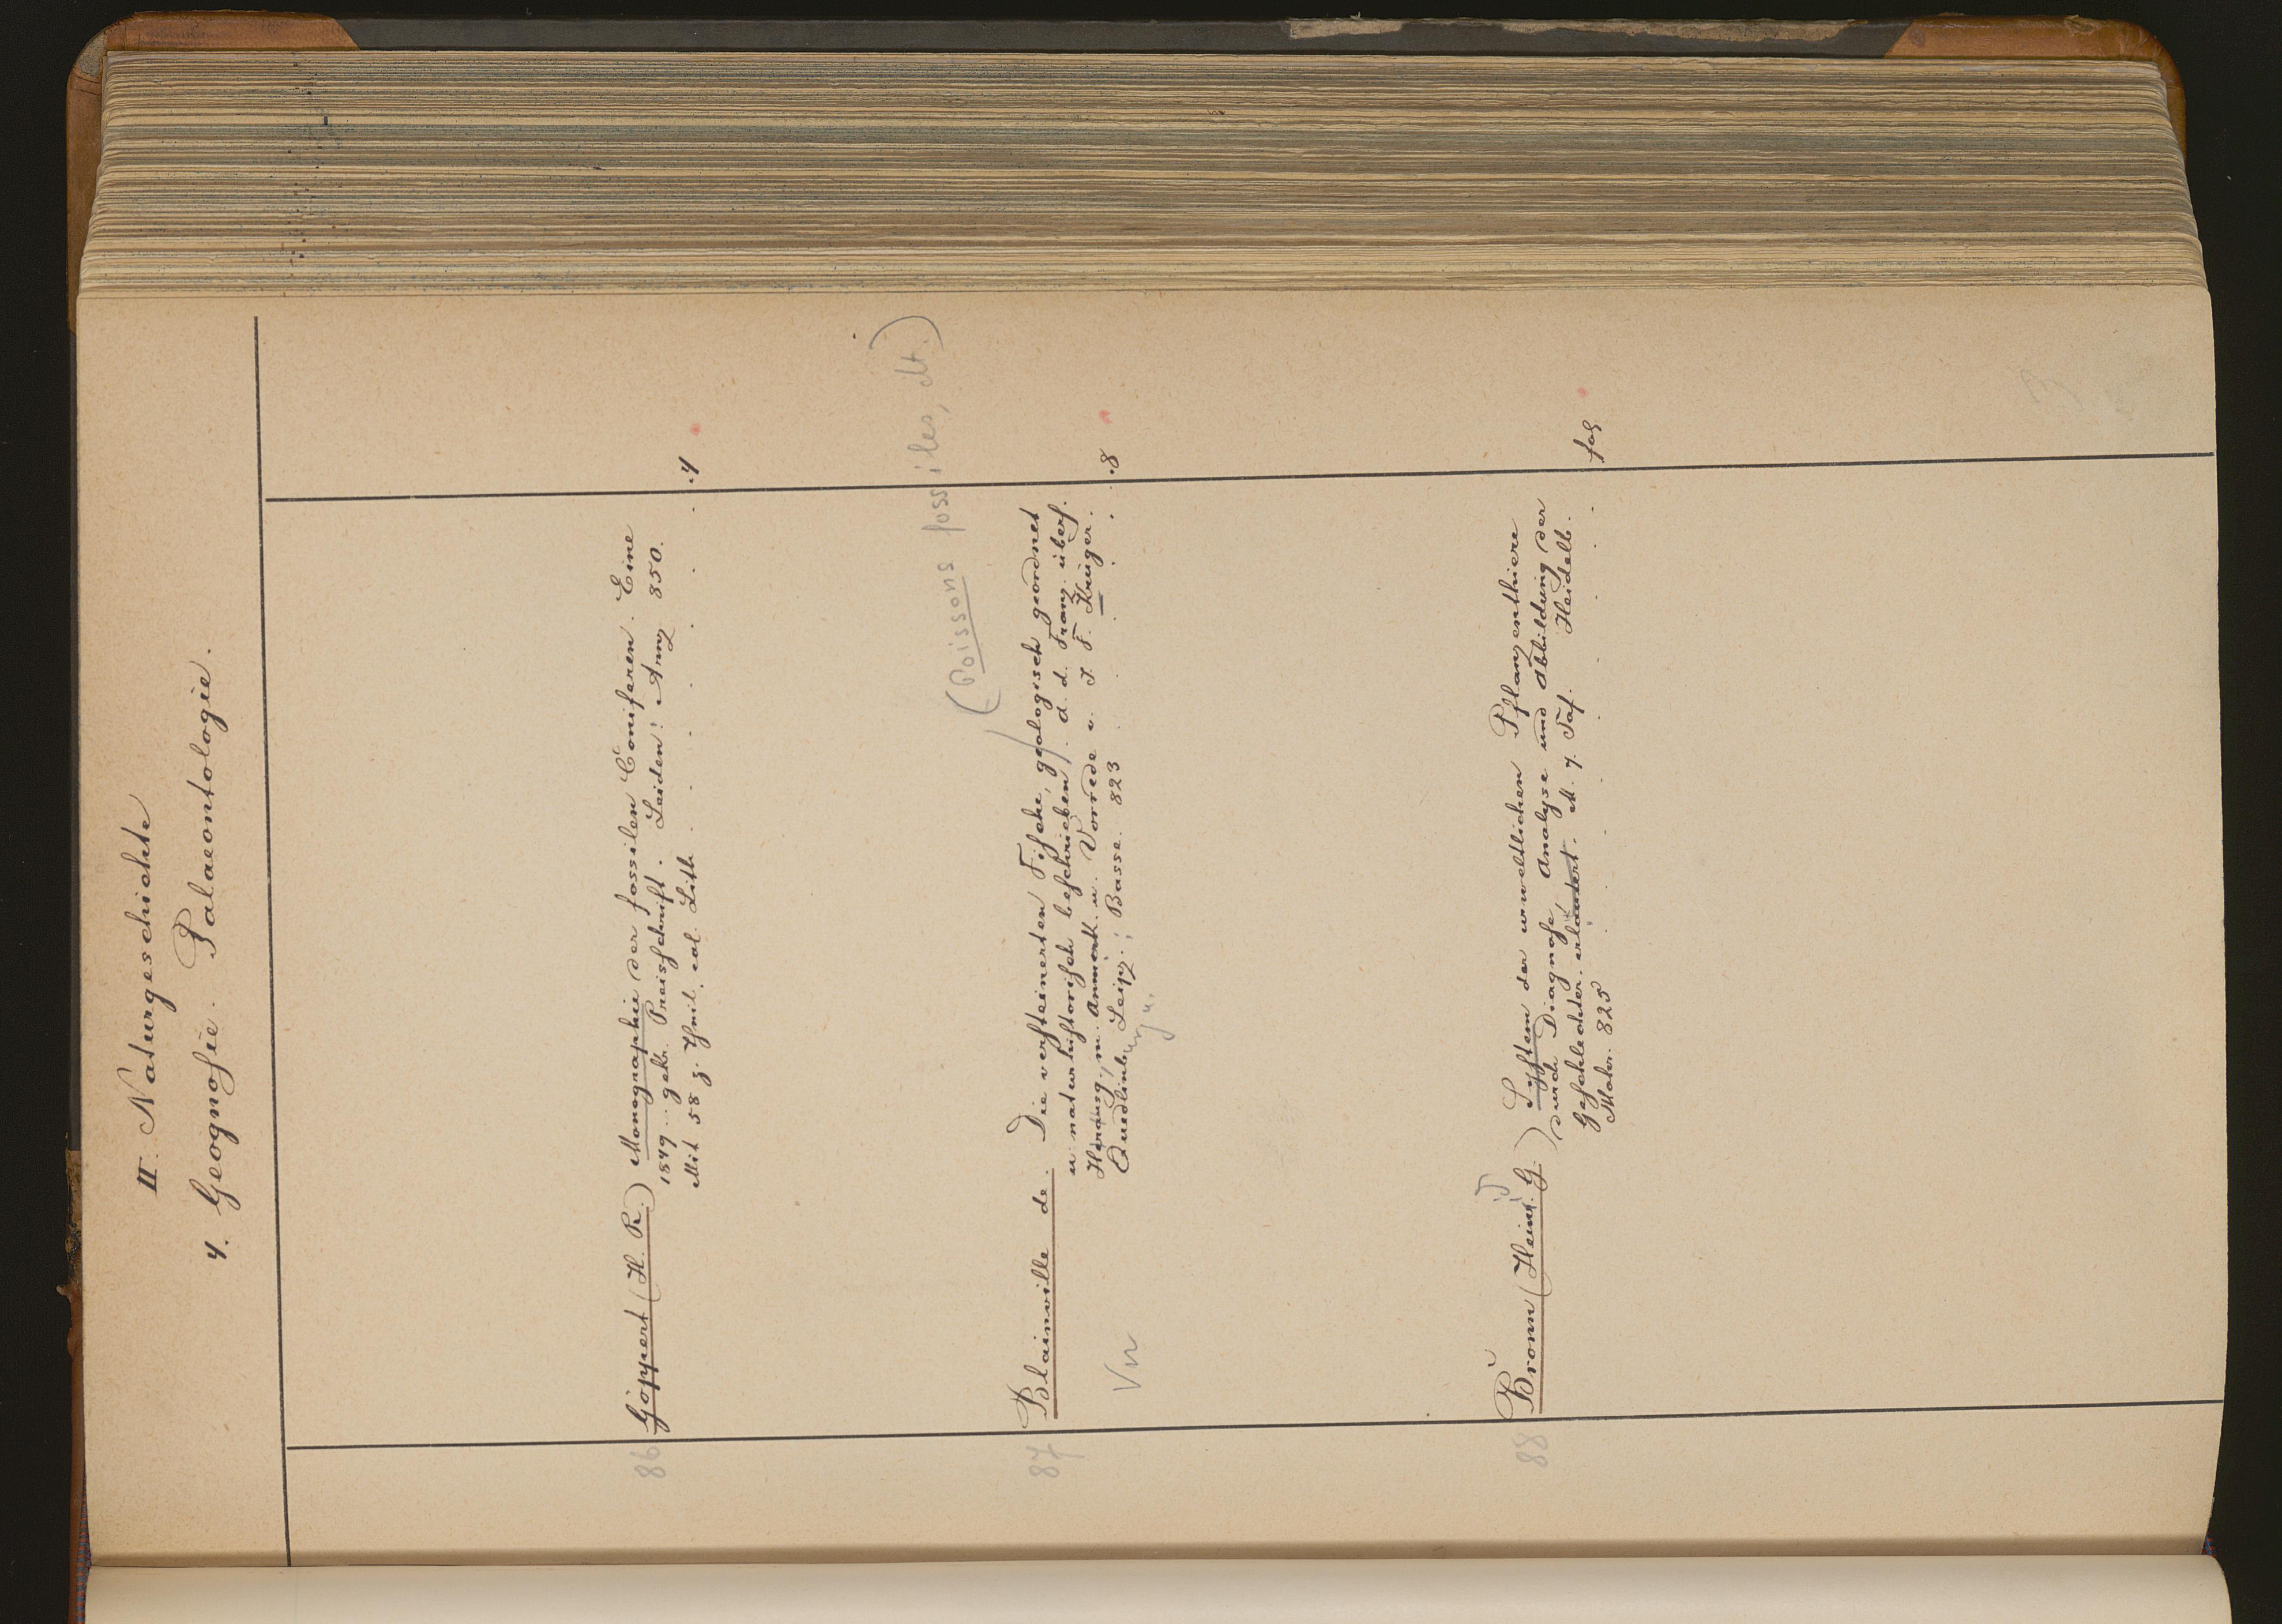 II. Naturgeschichte
4. Geognosie. Palaeontologie.
86 Göppert (H. R.) Monographie der fossilen Coniferen. Eine
1849 .. gekr. Preisschrift. Leiden: Arnz 850.
Mit 58 z. Theil. col. Lith . . . . . . . .4
(Poissons fossiles, dt.)
87 Blainville de. Die versteinerten Fische, geologisch geordnet
u naturhistorisch beschrieben. d. d. Franz. übers.
Herausg. m. Anmerk. u. Vorrede v. J. F. Krüger.
Quedlinburg u. Leipz.; Basse. 823 . . . . .8
88 Bronn (Heinr. G.) System der urweltlichen Pflanzenthiere
durch Diagnose, Analyse und Abbildung der
Geschlechter erläutert. M. 7. Taf. Heidelb.
Mohr. 825 . . . . . . fol